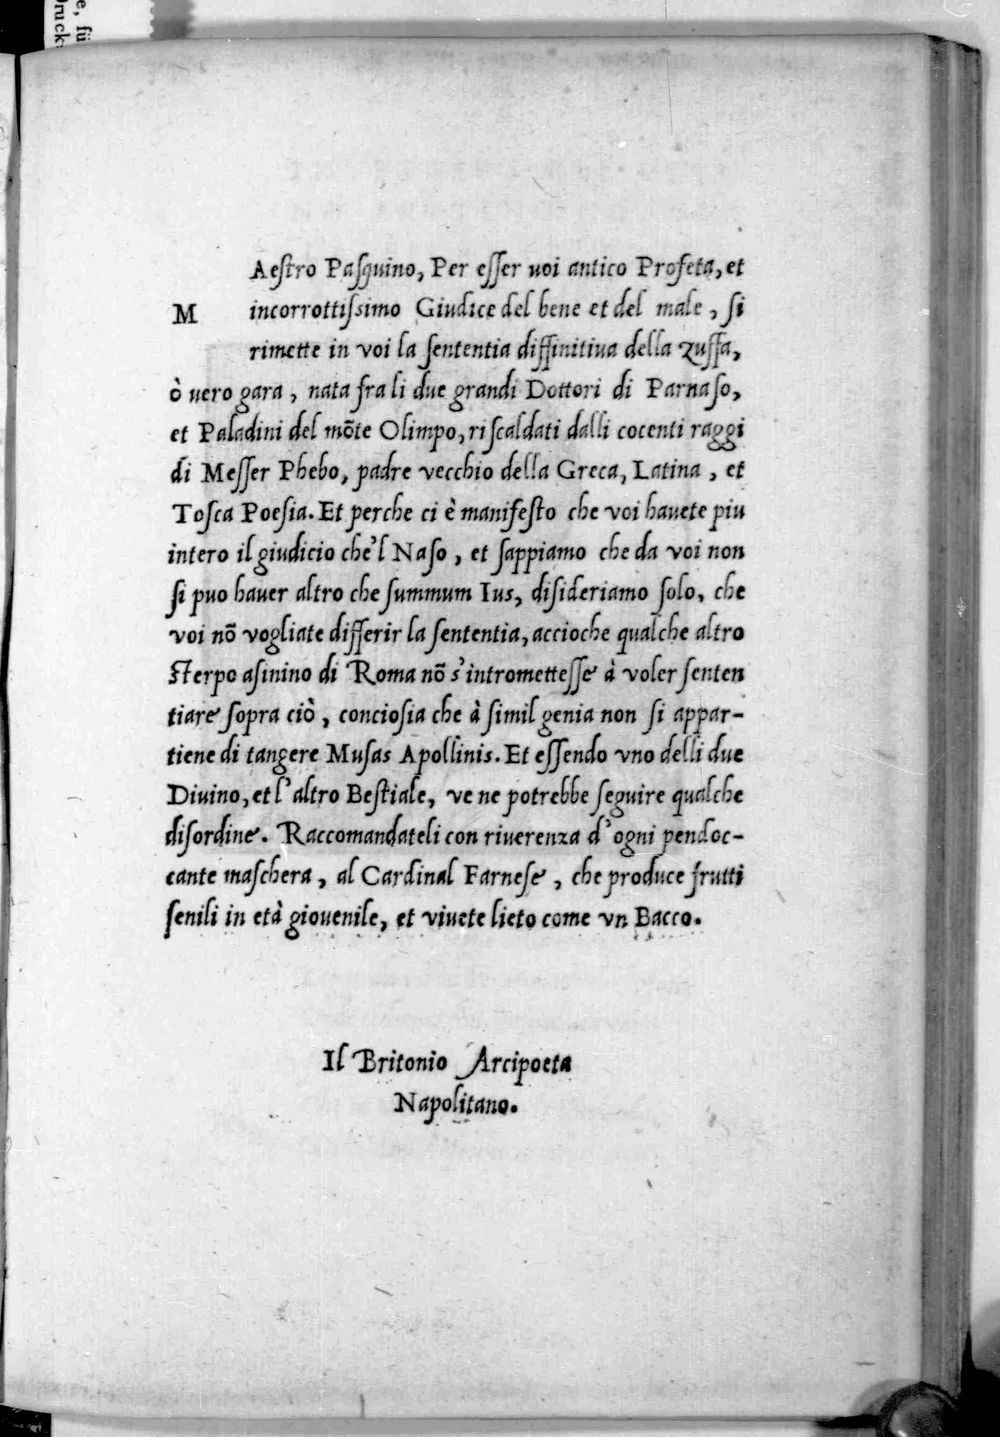 MAeſtro Paſquino, Per eſſer uoi antico Profeta, et
incorrottiſsimo Giudice del bene et del male, ſi
rimette in voi la ſententia diffinitiua della zuffa,
ò uero gara, nata fra li due grandi Dottori di Parnaſo,
et Paladini del mõte Olimpo, riſcaldati dalli cocenti raggi
di Meſſer Phebo, padre vecchio della Greca, Latina, et
Toſca Poeſia. Et perche ci è manifeſto che voi hauete piu
intero il giudicio che'l Naſo, et ſappiamo che da voi non
ſi puo hauer altro che ſummum Ius, diſideriamo ſolo, che
voi nõ vogliate differir la ſententia, accioche qualche altro
ſterpo aſinino di Roma nõ s'intrometteſſe à voler ſenten
tiare ſopra ciò, concioſia che à ſimil genia non ſi appar-
tiene di tangere Muſas Apollinis. Et eſſendo vno delli due
Diuino, et l'altro Beſtiale, ve ne potrebbe ſeguire qualche
diſordine. Raccomandateli con riuerenza d'ogni pendoc-
cante maſchera, al Cardinal Farneſe, che produce frutti
ſenili in età giouenile, et viuete lieto come vn Bacco.
Il Britonio Arcipoeta
Napolitano.